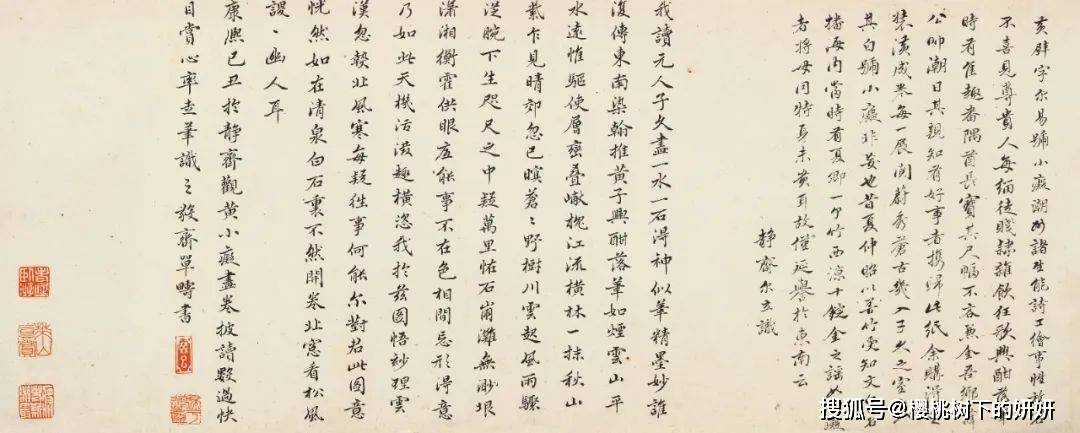 黄辟字尔易號小癡潮州諸生能詩工繪事性
不喜見尊貴人每緇徒賤隸雜飲狂歌興酣落
時有隹趣番隅酋長寶其尺幅不啻兼金吾鄉
公帥潮日其親知有好事者携歸此紙余購得之
裝潢成卷每一展閱蔚秀蒼古幾入子久之室
其自號小癡非妄也昔夏仲昭以善竹受知文
播海內當時有夏卿一个竹西涼十錠金之謠
者將毋同特身未貴耳故僅延譽於東南云
靜齋尔立識
我讀元人子久畫一水一石得神似筆精墨妙誰
復傳東南染翰推黃子興酣落筆如煙雲山平
水遠惟驅使層巒叠巘枕江流橫林一抹秋山
紫乍見晴郊忽已暝蒼〻野樹川雲起風雨驟
從腕下生咫尺之中疑萬里怪石崩灘無渺垠
瀟湘衡霍供眼底能事不在色相間忘形得意
乃如此天機活潑趣橫恣我於兹圖悟妙理雲
漢忽熱北風寒每疑往事何能尔對君此圖意
恍然如在清泉白石裏不然開卷北窓看松風
謖〻幽人耳
康熙己丑於靜齋觀黃小癡畫卷披讀數過快
目賞心率書筆識之 稼齋單疇書
搜狐号@樱桃树下的妍妍